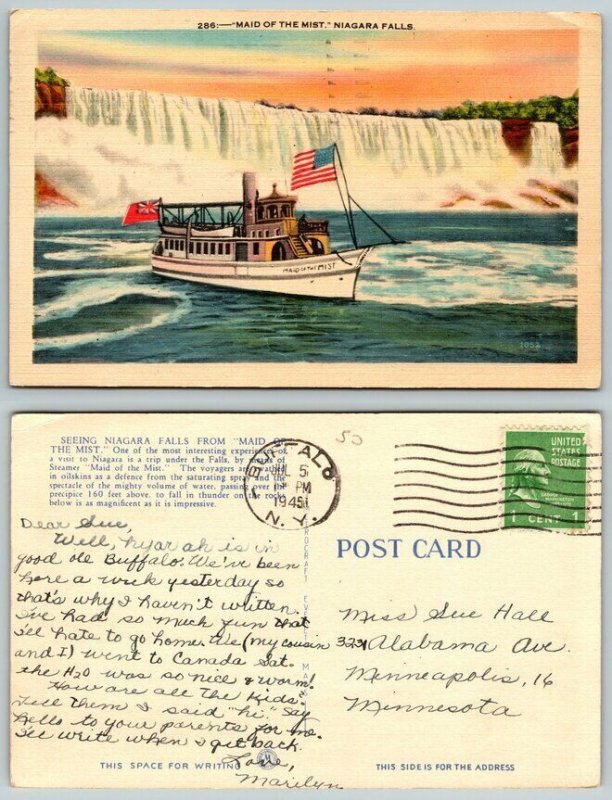 286:—"MAID OF THE MIST," NIAGARA FALLS.
MAID OF THE MIST
1052
SEEING NIAGARA FALLS FROM "MAID OF
THE MIST." One of the most interesting experiences of
a visit to Niagara is a trip under the Falls, by means of
Steamer "Maid of the Mist." The voyagers are
in oilskins as a defence from the saturating spray and the
spectacle of the mighty volume of water, passing over the
precipice 160 feet above, to fall in thunder on the rocks
below is as magnificent as it is impressive.
BUFFALO
JUL 5
PM
1945
N.Y.
50
UNITED
STATES
POSTAGE
1 CENT 1
POST CARD
Dear Sue,
Well, hyar ah is in
good ole Buffalo. We've been
here a week yesterday so
that's why I haven't written.
I've had so much fun that
I'll hate to go home. We (my cousin
and I) went to Canada Sat.
the H2O was so nice & warm!
How are all the kids.
Tell them I said "hi." Say
hello to your parents for me.
I'll write when I get back.
Love,
Marilyn
Miss Sue Hall
3231 Alabama Ave.
Minneapolis, 16
Minnesota
THIS SPACE FOR WRITING
THIS SIDE IS FOR THE ADDRESS